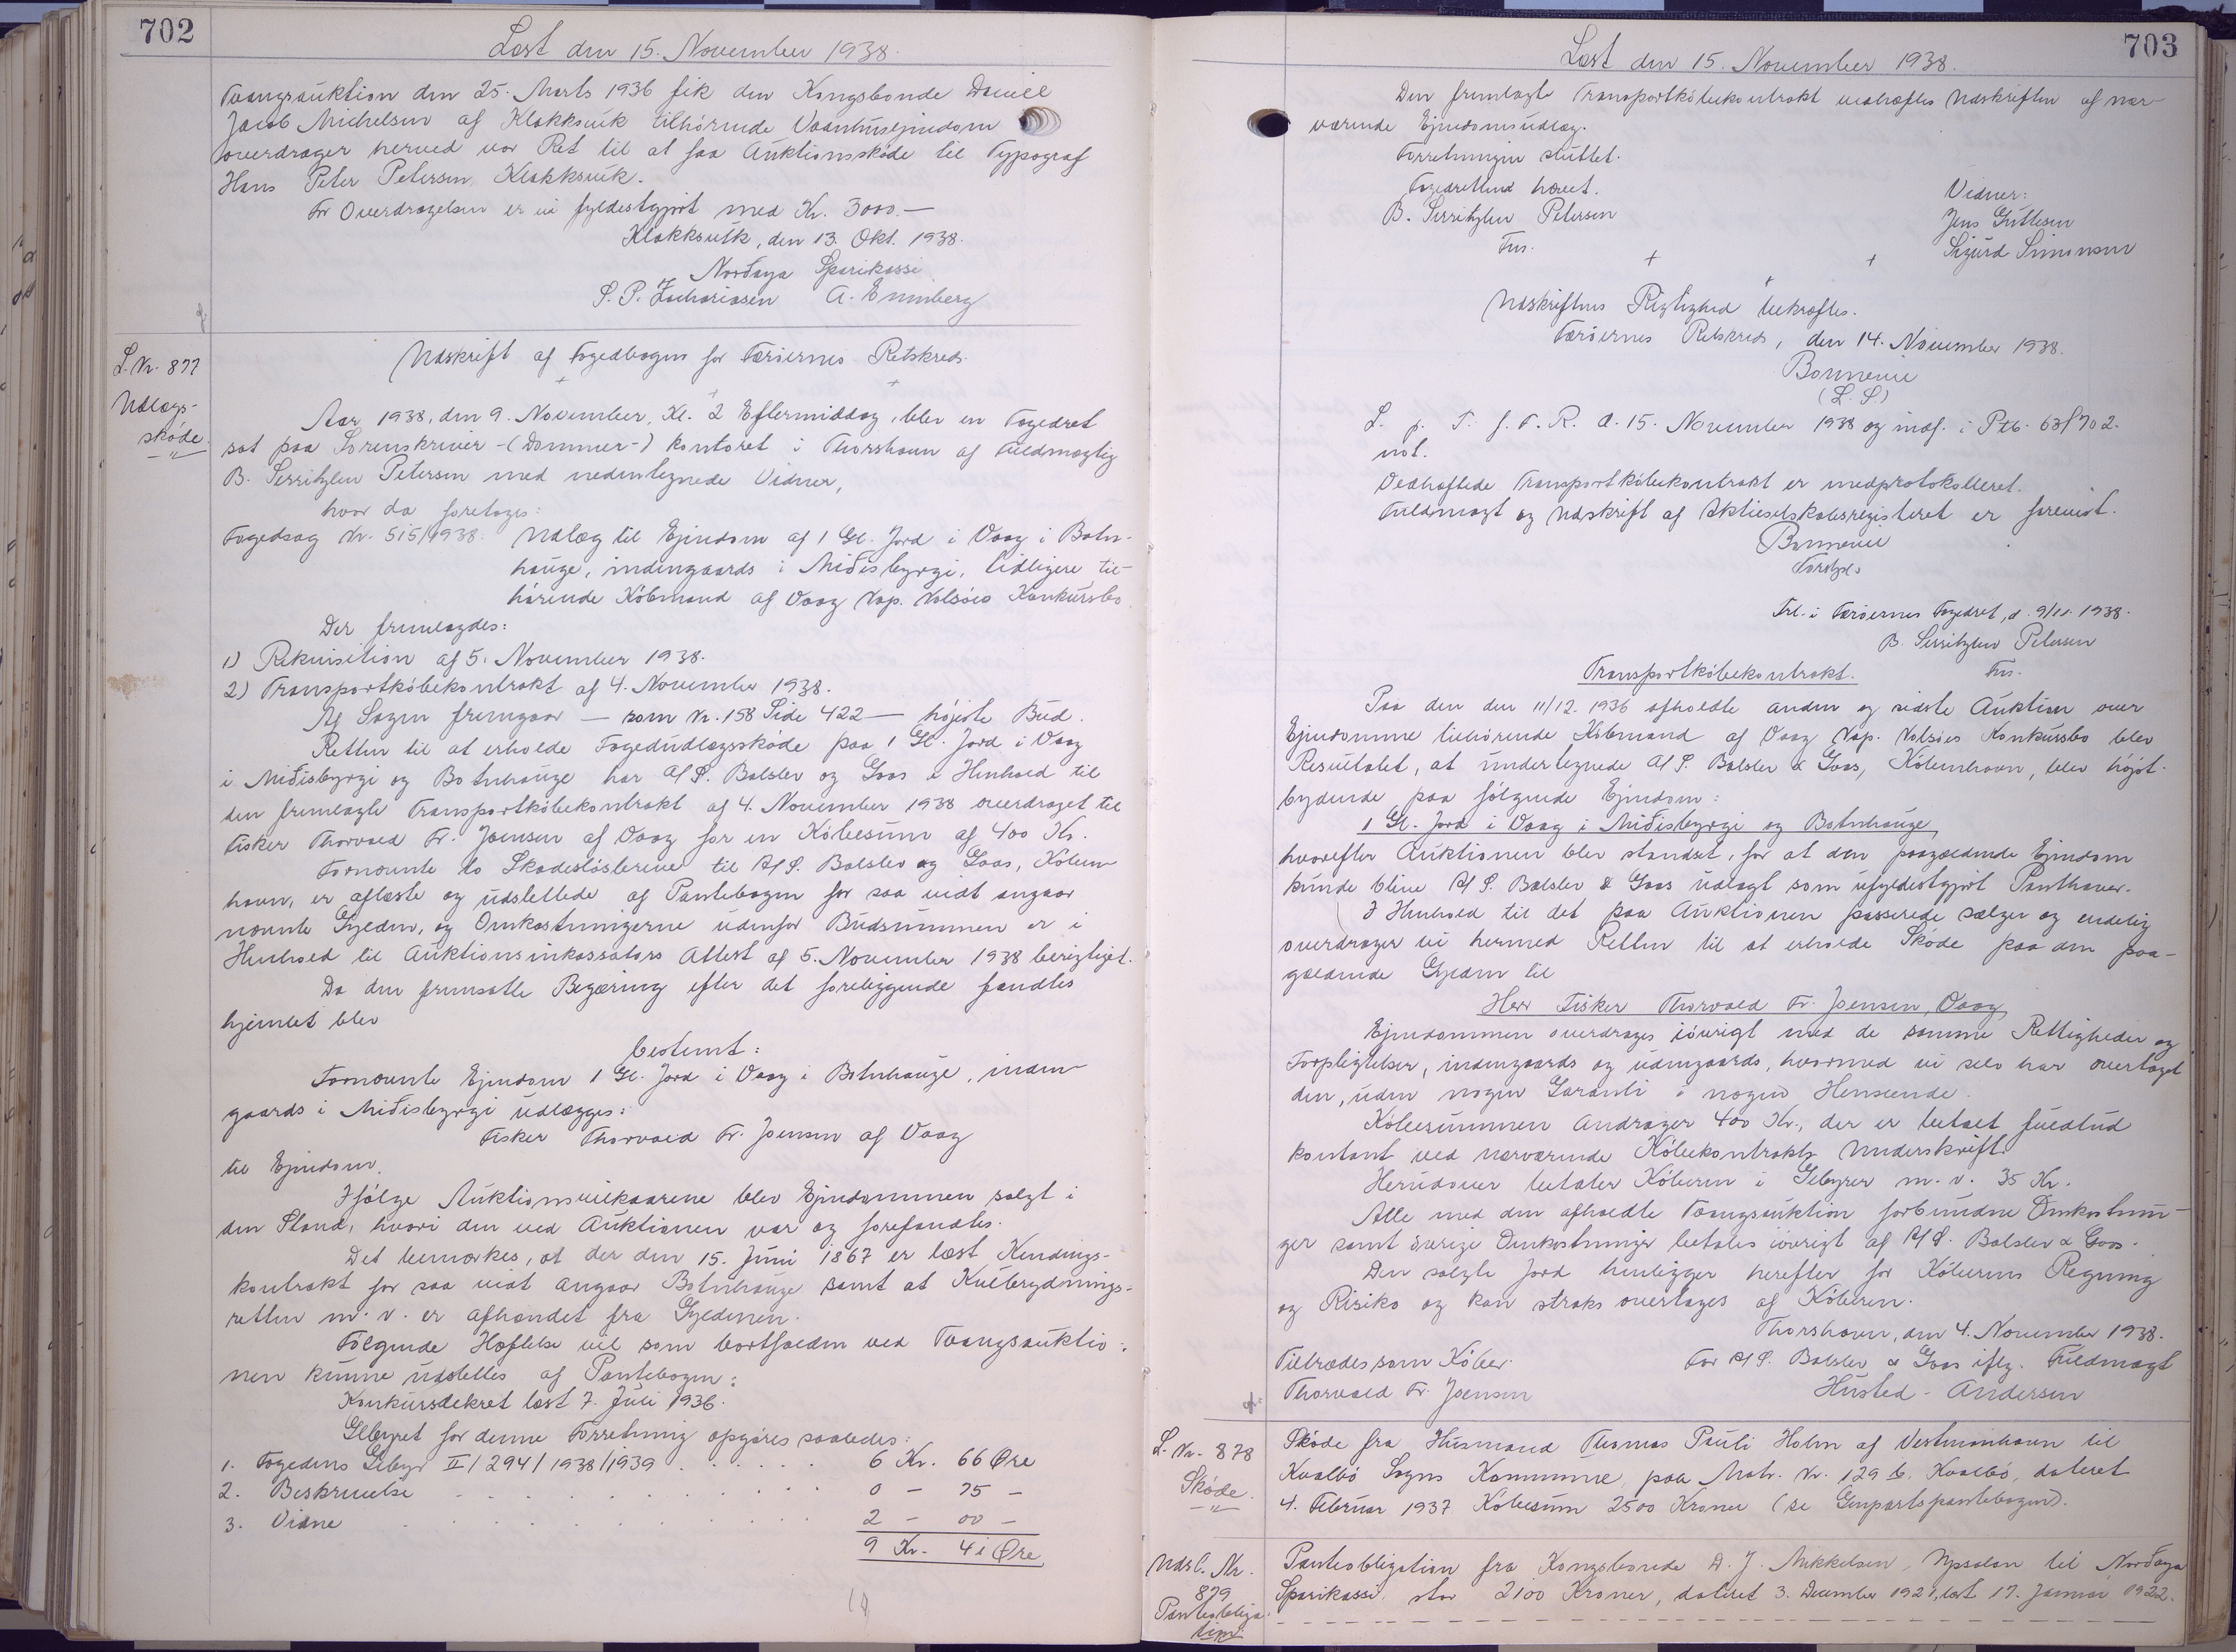 702
Læst den 15. November 1938.
Tvangsauktion den 25. Marts 1936 fik den Kongsbonde Daniel
Jacob Michelsen af Klakksvik tilhørende Vaanhusejendom
overdrager herved vor Ret til at faa Auktionsskøde til Typograf
Hans Peter Petersen, Klakksvik.
For Overdragelsen er vi fyldestgjort med Kr. 3000.—
Klakksvik, den 13. Okt. 1938.
Norðoya Sparikassi
S. P. Zachariasen A. Enniberg
L. Nr. 877
Udlægs-
skøde.
Udskrift af Fogedbogen for Færøernes Retskreds.
Aar 1938, den 9. November, Kl. 2 Eftermiddag, blev en Fogedret
sat paa Sorenskriver-(Dommer-) kontoret i Thorshavn af Fuldmægtig
B. Serritzlew Petersen med nedentegnede Vidner,
hvor da foretoges:
Fogedsag Nr. 515/1938: Udlæg til Ejendom af 1 Gl. Jord i Vaag i Botn-
hauge, indengaards i Miðisbyrgi, tidligere til-
hørende Købmand af Vaag Nap. Nolsøes Konkursbo
Der fremlagdes:
1) Rekvisition af 5. November 1938.
2) Transportkøbekontrakt af 4. November 1938.
Af Sagen fremgaar — som Nr. 158 Side 422 — højeste Bud.
Retten til at erholde Fogedudlægsskøde paa 1 Gl. Jord i Vaag
i Miðisbyrgi og Botnhauge har A/S. Balslev og Goos i Henhold til
den fremlagte Transportkøbekontrakt af 4. November 1938 overdraget til
Fisker Thorvald Fr. Joensen af Vaag for en Købesum af 400 Kr.
Fornævnte to Skadesløsbreve til A/S. Balslev og Goos, Køben-
havn, er aflæste og udslettede af Pantebogen for saa vidt angaar
nævnte Ejedom, og Omkostningerne udenfor Budsummen er i
Henhold til Auktionsinkassators Attest af 5. November 1938 berigtiget.
Da den fremsatte Begæring efter det foreliggende fandtes
hjemlet blev
bestemt:
Fornævnte Ejendom 1 Gl. Jord i Vaag i Botnhauge, inden-
gaards i Miðisbyrgi udlægges:
Fisker Thorvald Fr. Joensen af Vaag
til Ejendom.
Ifølge Auktionsvilkaarene blev Ejendommen solgt i
den Stand, hvori den ved Auktionen var og forefandtes.
Det bemærkes, at der den 15. Juni 1867 er læst Kendings-
kontrakt for saa vidt angaar Botnhauge samt at Kulbrydnings-
retten m. v. er afhændet fra Ejedmen.
Følgende Hæftelse vil som bortfalden ved Tvangsauktio-
nen kunne udslettes af Pantebogen:
Konkursdekret læst 7. Juli 1936.
Gebyret for denne Forretning opgøres saaledes:
1. Fogedens Gebyr II/294/1938/1939 . . . . . . 6 Kr. 66 Øre
2. Beskrivelse . . . . . . . . . . 0 — 75 —
3. Vidne . . . . . . . . . . 2 — 00 —
9 Kr. 41 Øre
703
Læst den 15. November 1938.
Den fremlagte Transportkøbekontrakt vedhæftes Udskriften af nær-
værende Ejendomsudlæg.
Forretningen sluttet.
Fogedretten hævet.
B. Serritzlew Petersen
Fm.
Vidner:
Jens Guttesen
Sigurd Simonsen
Udskriftens Rigtighed bekræftes.
Færøernes Retskreds, den 14. November 1938.
Bonnevie
(L. S.)
L. p. T. f. F. R. d. 15. November 1938 og indf. i Ptb. 63f702.
not.
Vedhæftede Transportkøbekontrakt er medprotokolleret.
Fuldmagt og Udskrift af Aktieselskabsregisteret er forevist.
Bonnevie
Frl. i Færøernes Fogedret, d. 9/11. 1938.
B. Serritzlew Petersen
Fm.
Transportkøbekontrakt.
Paa den den 11/12. 1936 afholdte anden og sidste Auktion over
Ejendomme tilhørende Købmand af Vaag Nap. Nolsøes Konkursbo blev
Resultatet, at undertegnede A/S. Balslev & Goos, København, blev højst-
bydende paa følgende Ejendom:
1 Gl. Jord i Vaag i Miðisbyrgi og Botnhauge,
hvorefter Auktionen blev standset, for at den paagældende Ejendom
kunde blive A/S. Balslev & Goos udlagt som ufyldestgjort Panthaver.
I Henhold til det paa Auktionen passerede sælger og endelig
overdrager vi hermed Retten til at erholde Skøde paa den paa-
gældende Ejedom til
Herr Fisker Thorvald Fr. Joensen, Vaag,
Ejendommen overdrages iøvrigt med de samme Rettigheder og
Forpligtelser, indengaards og udengaards, hvormed vi selv har overtaget
den, uden nogen Garanti i nogen Henseende.
Købesummen andrager 400 Kr., der er betalt fuldtud
kontant ved nærværende Købekontrakts Underskrift.
Herudover betaler Køberen i Gebyrer m. v. 35 Kr.
Alle med den afholdte Tvangsauktion forbundne Omkostnin-
ger samt øvrige Omkostninger betales iøvrigt af A/S. Balslev & Goos.
Den solgte Jord henligger herefter for Køberens Regning
og Risiko og kan straks overtages af Køberen.
Thorshavn, den 4. November 1938.
Tiltrædes som Køber: For A/S. Balslev & Goos iflg. Fuldmagt
Thorvald Fr. Joensen Husted-Andersen
L. Nr. 878
Skøde.
Skøde fra Husmand Thomas Pauli Holm af Vestmanhavn til
Kvalbø Sogns Kommune, paa Matr. Nr. 129 b, Kvalbø, dateret
4. Februar 1937. Købesum 2500 Kroner (se Genpartspantebogen).
Udsl. Nr.
879
Panteobliga-
tion
Panteobligation fra Kongsbonde D. J. Mikkelsen, Upsalon til Norðoya
Sparikassi stor 2100 Kroner, dateret 3. December 1921, læst 17. Januar 1922.